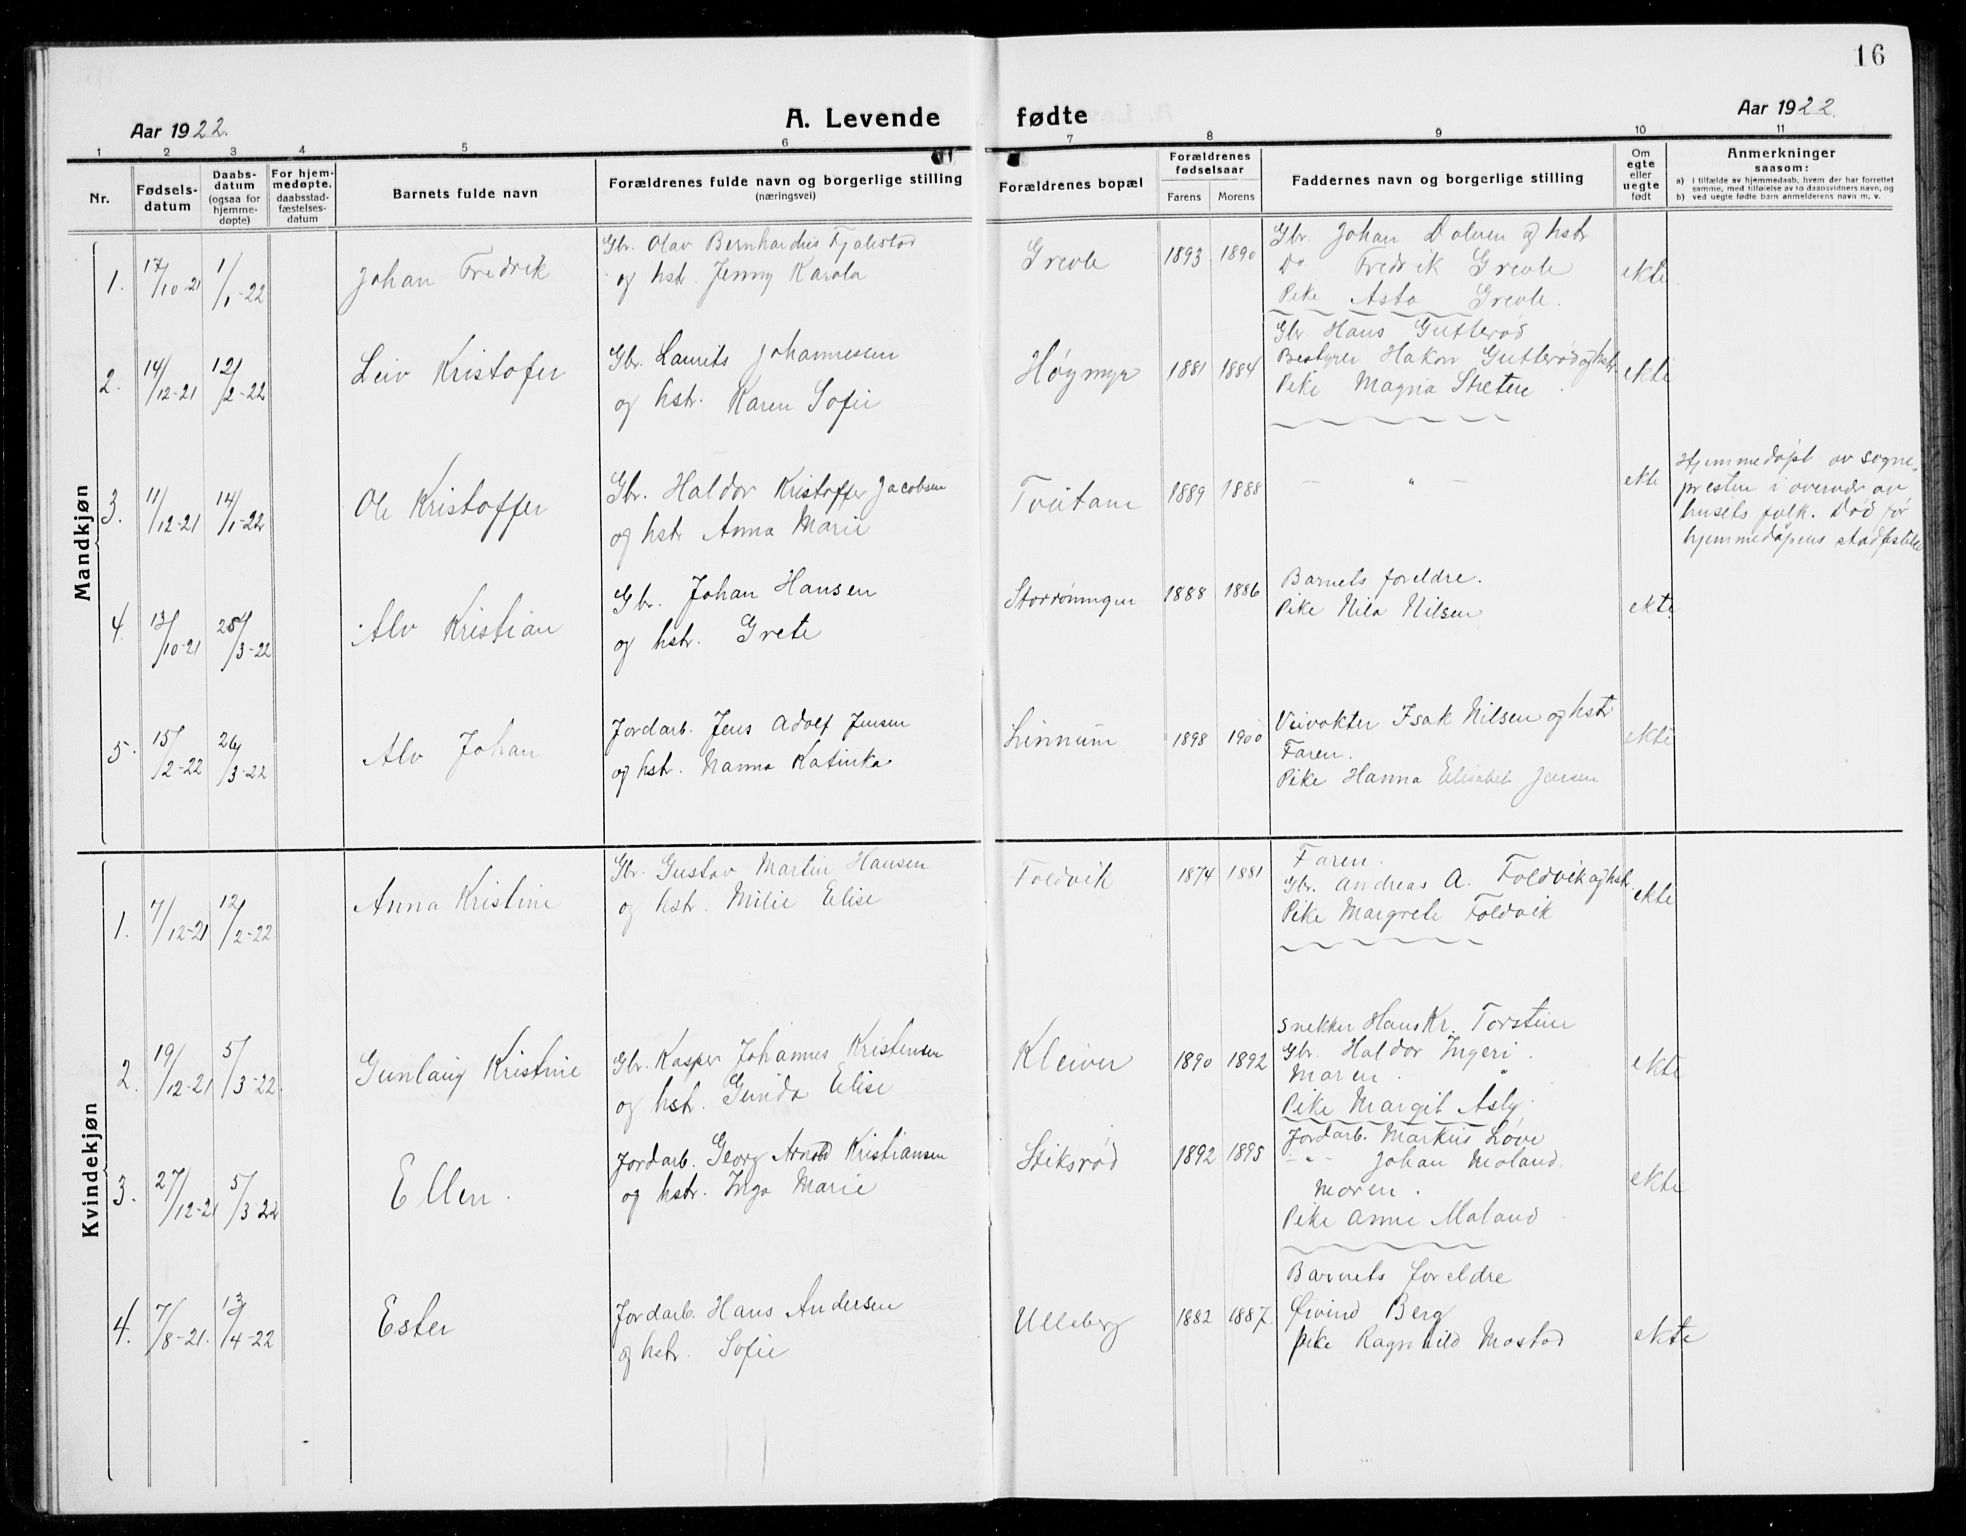 16
Aar 1922.
A. Levende fødte
Aar 1922.
1 2 3 4 5 6 7 8 9 10 11
Nr.
Fødsels-
datum
Daabs-
datum
(ogsaa for
hjemme-
døpte)
For hjem-
medøpte.
daabsstad-
fæstelses-
datum
Barnets fulde navn
Forældrenes fulde navn og borgerlige stilling
(næringsvei)
Forældrenes bopæl
Forældrenes
fødselsaar
Farens Morens
Faddernes navn og borgerlige stilling
Om
egte
eller
uegte
født
Anmerkninger
saasom:
a) i tilfælde av hjemmedaab, hvem der har forrettet
samme, med tilføielse av to daabsvidners navn, og
b) ved uegte fødte barn anmelderens navn m. v.
Mandkjøn
1. 17/10-21 1/1-22 Johan Fredrik
Gbr. Olav Bernhardus Fjalestad
og hstr. Jenny Karola
Grevle 1893 1890
Gbr. Johan Dalven og hstr
Do Fredrik Grevle
Pike Asta Grevle.
ekte
2. 14/12-21 12/2-22 Leiv Kristofer
Gbr. Laurits Johannessen
og hstr. Karen Sofie
Høymyr 1881 1884
Gbr Hans Gutterød
Bestyrer Hakon Gutterød og hstr.
Pike Magna Skatere
ekte
3. 11/12-21 14/1-22 Ole Kristoffer
Gbr. Haldor Kristoffer Jacobsen
og hstr Anna Marie
Tveitane 1889 1888
— " —
ekte
Hjemmedøpt av sogne-
presten i overvær av
husets folk. Død før
hjemmedåpens stadfestelse
4. 13/10-21 25/3-22 Alv Kristian
Gbr. Johan Hansen
og hstr. Grete
Storrøningen 1888 1886
Barnets foreldre.
Pike Nila Nilsen
ekte
5. 15/2-22 26/3-22 Alv Johan
Jordarb. Jens Adolf Jensen
og hstr. Nanna Katinka
Linnum 1898 1900
Veivokter Isak Nilsen og hstr
Faren.
Pike Hanna Elisabet Jensen
ekte
Kvindekjøn
1. 7/12-21 12/2-22 Anna Kristine
Gbr. Gustav Martin Hansen
og hstr. Milie Elise
Foldvik 1874 1881
Faren.
Gbr. Andreas A. Foldvik og hstr.
Pike Margrete Foldvik
ekte
2. 19/12-21 5/3-22 Gunlaug Kristine
Gbr. Kasper Johannes Kristensen
og hstr. Gunda Elise
Kleiver 1890 1892
Snekker Hans Kr. Torstein
Gbr. Haldor Ingeri.
Maren. "
Pike Margit Asly.
ekte
3. 27/12-21 5/3-22 Ellen.
Jordarb. Georg Arnold Kristiansen
og hstr. Inga Marie
Stiksrød 1892 1895
Jordarb. Markus Løve
-"- Johan Moland.
Moren.
Pike Anne Moland
ekte
4. 7/8-21. 13/4-22 Ester
Jordarb. Hans Andersen
og hstr. Sofie
Ulleberg 1882 1887.
Barnets foreldre
Øivind Berg
Pike Ragnhild Mostad
ekte